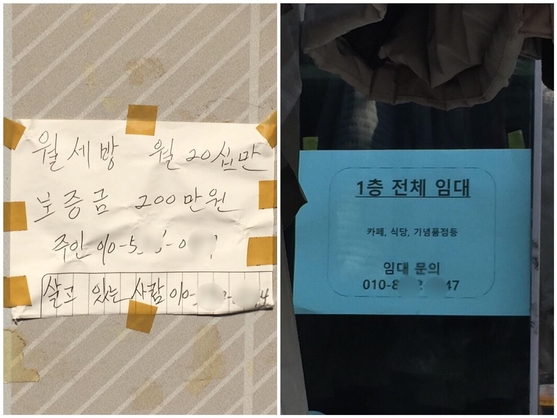 월세방 월 20십만
보증금 200만원
주인 010-5
살고 있는 사람 010-
1층 전체 임대
카페, 식당, 기념품점등
임대 문의
010-8 47